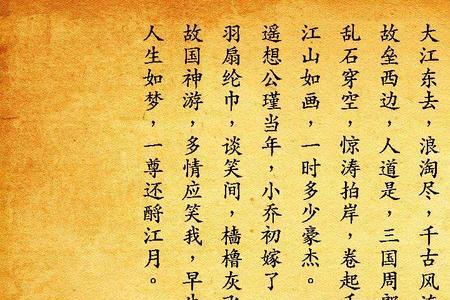 大江东去，浪淘尽，千古风
故垒西边，人道是，三国周
乱石穿空，惊涛拍岸，卷起
江山如画，一时多少豪杰。
遥想公瑾当年，小乔初嫁了
羽扇纶巾，谈笑间，樯橹灰
故国神游，多情应笑我，早
人生如梦，一尊还酹江月。